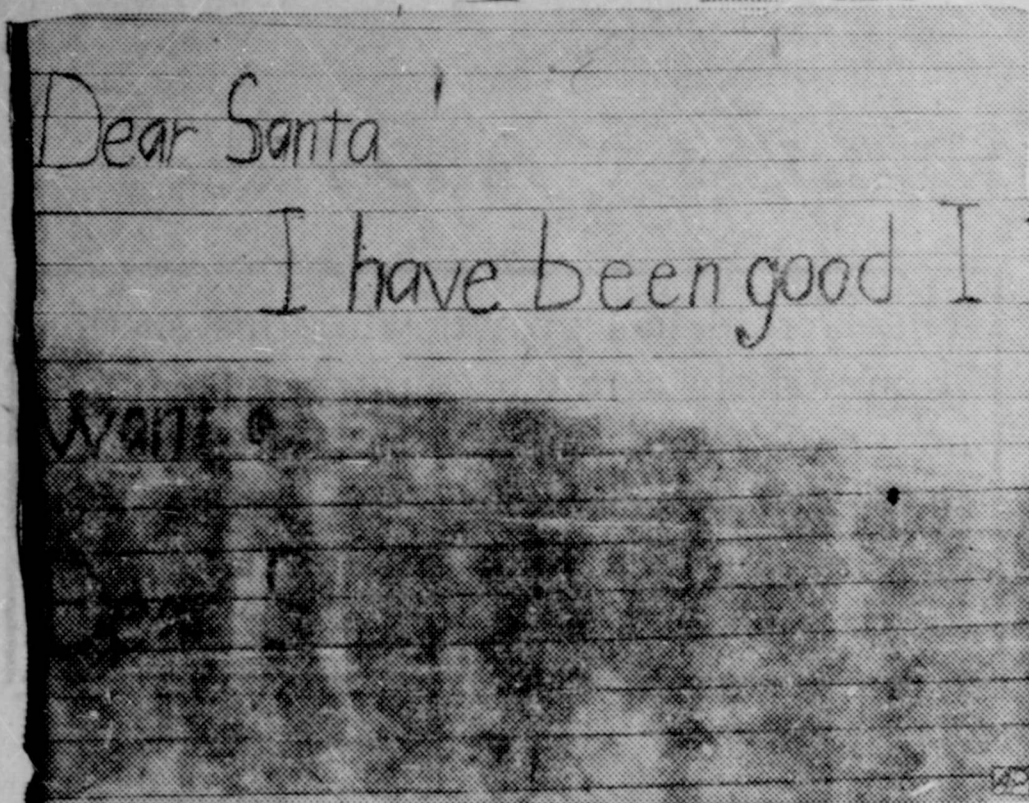 Dear Santa
I have been good I
want a